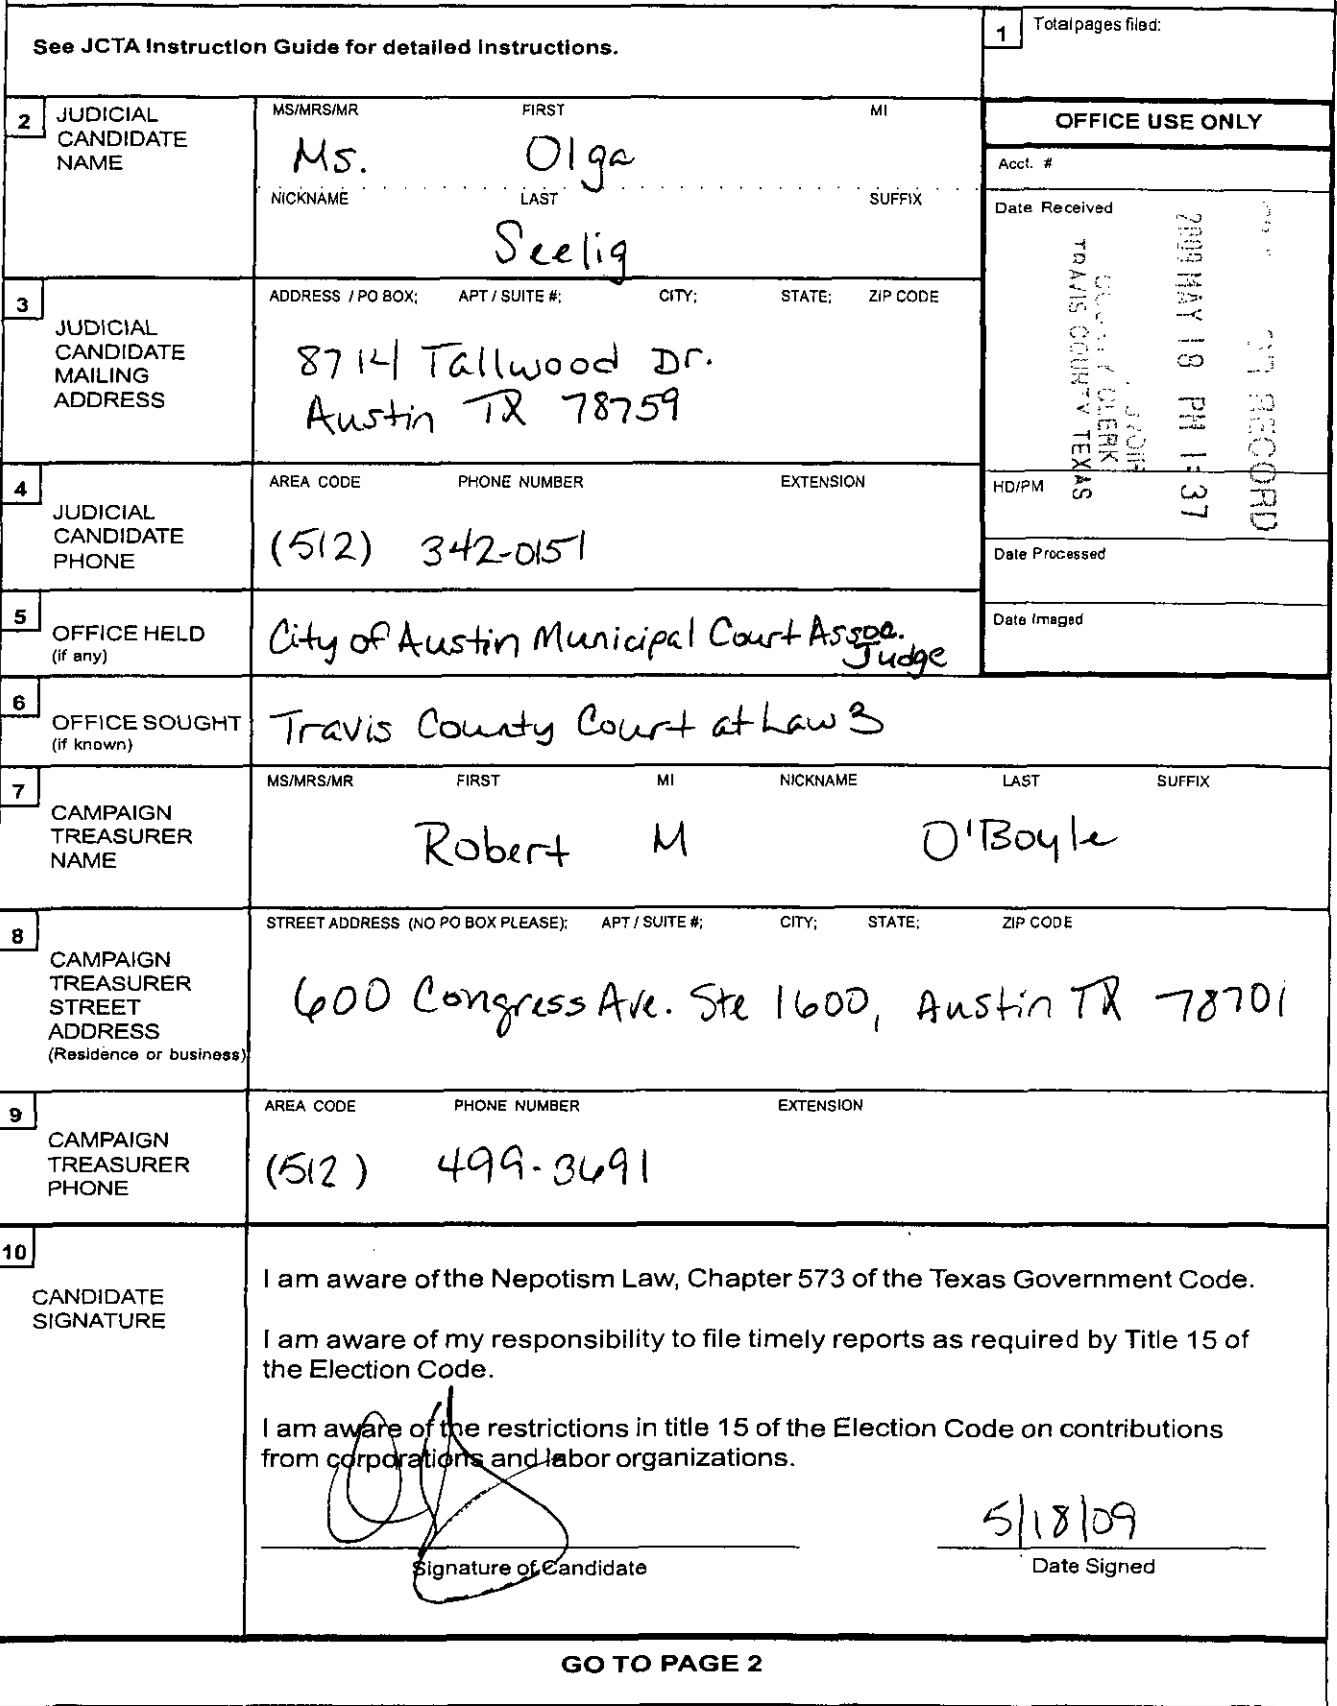 See JCTA Instruction Guide for detailed Instructions.
1 Total pages filed:
2 JUDICIAL CANDIDATE NAME
MS/MRS/MR FIRST MI
Ms. Olga
NICKNAME LAST SUFFIX
Seelig
OFFICE USE ONLY
Acct. #
Date Received
RECORD
2009 MAY 18 PM 1:37
CLERK
TRAVIS COUNTY TEXAS
HD/PM
Date Processed
Date Imaged
3 JUDICIAL CANDIDATE MAILING ADDRESS
ADDRESS / PO BOX; APT / SUITE #; CITY; STATE; ZIP CODE
8714 Tallwood Dr.
Austin TX 78759
4 JUDICIAL CANDIDATE PHONE
AREA CODE PHONE NUMBER EXTENSION
(512) 342-0151
5 OFFICE HELD (if any)
City of Austin Municipal Court Assoc.
Judge
6 OFFICE SOUGHT (if known)
Travis County Court at Law 3
7 CAMPAIGN TREASURER NAME
MS/MRS/MR FIRST MI NICKNAME LAST SUFFIX
Robert M O'Boyle
8 CAMPAIGN TREASURER STREET ADDRESS (Residence or business)
STREET ADDRESS (NO PO BOX PLEASE); APT / SUITE #; CITY; STATE; ZIP CODE
600 Congress Ave. Ste 1600, Austin TX 78701
9 CAMPAIGN TREASURER PHONE
AREA CODE PHONE NUMBER EXTENSION
(512) 499-3691
10 CANDIDATE SIGNATURE
I am aware of the Nepotism Law, Chapter 573 of the Texas Government Code.
I am aware of my responsibility to file timely reports as required by Title 15 of
the Election Code.
I am aware of the restrictions in title 15 of the Election Code on contributions
from corporations and labor organizations.
5/18/09
Signature of Candidate Date Signed
GO TO PAGE 2